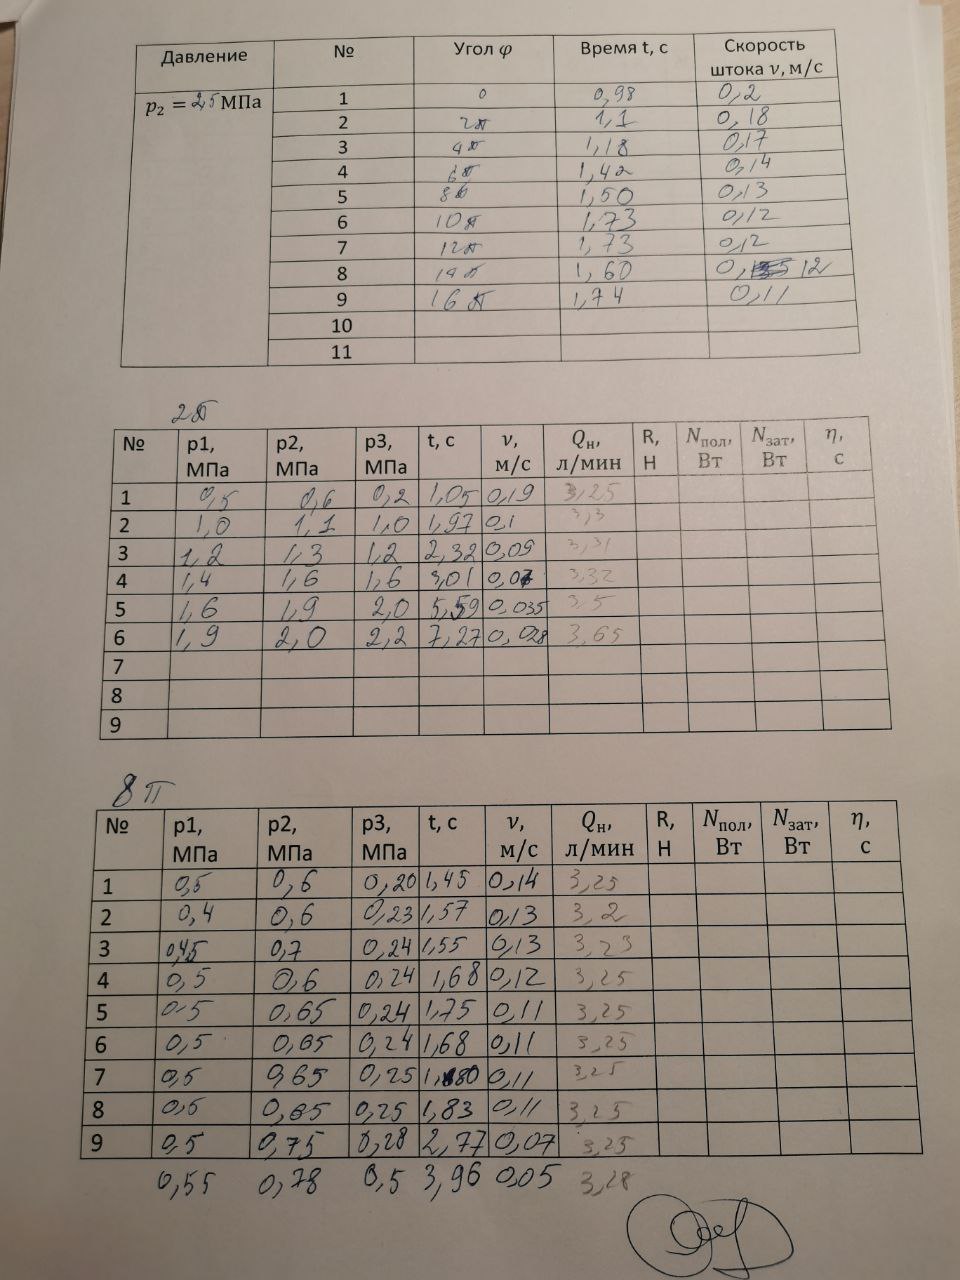 Давление № Угол φ Время t, с Скорость штока v, м/с
p₂ = 2,5 МПа 1 0 0,98 0,2
2 2π 1,1 0,18
3 4π 1,18 0,17
4 6π 1,42 0,14
5 8π 1,50 0,13
6 10π 1,73 0,12
7 12π 1,73 0,12
8 14π 1,60 0,12
9 16π 1,74 0,11
10
11
2π
№ p1, МПа p2, МПа p3, МПа t, с v, м/с Qн, л/мин R, Н Nпол, Вт Nзат, Вт η, с
1 0,5 0,6 0,2 1,05 0,19 3,25
2 1,0 1,1 1,0 1,97 0,1 3,3
3 1,2 1,3 1,2 2,32 0,09 3,31
4 1,4 1,6 1,6 3,01 0,07 3,32
5 1,6 1,9 2,0 5,59 0,035 3,5
6 1,9 2,0 2,2 7,27 0,028 3,65
7
8
9
8π
№ p1, МПа p2, МПа p3, МПа t, с v, м/с Qн, л/мин R, Н Nпол, Вт Nзат, Вт η, с
1 0,5 0,6 0,20 1,45 0,14 3,25
2 0,4 0,6 0,23 1,57 0,13 3,2
3 0,45 0,7 0,24 1,55 0,13 3,23
4 0,5 0,6 0,24 1,68 0,12 3,25
5 0,5 0,65 0,24 1,75 0,11 3,25
6 0,5 0,65 0,24 1,68 0,11 3,25
7 0,5 0,65 0,25 1,80 0,11 3,25
8 0,5 0,65 0,25 1,83 0,11 3,25
9 0,5 0,75 0,28 2,77 0,07 3,25
0,55 0,78 0,5 3,96 0,05 3,28